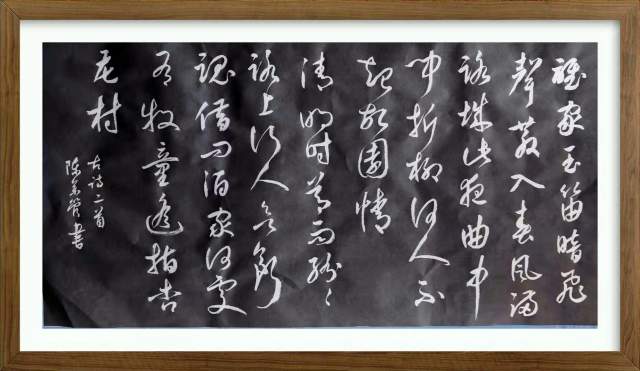 誰家玉笛暗飛
聲散入春風滿
洛城此夜曲中
聞折柳何人不
起故園情
清明時節雨紛〻
路上行人欲斷
魂借問酒家何處
有牧童遙指杏
花村
古詩二首
陳 書